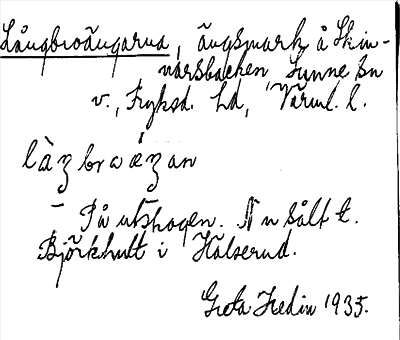 Långbroängarna, ängsmark å Skin-
narsbacken, Sunne sn
v., Fryksd. hd, Värml. l.
làŋbraéŋan
– På utskogen. Nu såld t.
Björkhult i Hälserud.
Greta Hedin 1935.